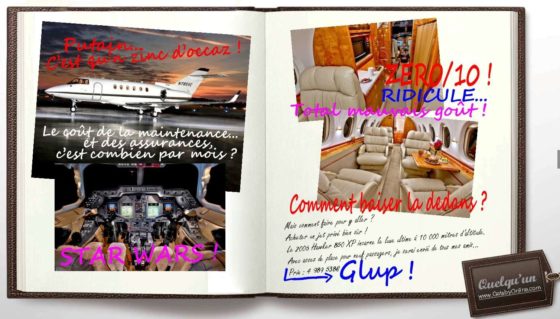 Putain...
C'est qu'un zinc d'occaz !
Le coût de la maintenance...
et des assurances,
c'est combien par mois ?
STAR WARS !
ZERO/10 !
RIDICULE...
Total mauvais goût !
Comment baiser la dedans ?
Mais comment faire pour y aller ?
Acheter un jet privé bien sûr !
Le 2005 Hawker 850 XP incarne le luxe ultime à 10 000 mètres d'altitude.
Avec assez de place pour neuf passagers, je serai envié de tous mes amis...
Prix : 4 989 538€
Glup !
Quelqu'un
www.GatsbyOnline.com